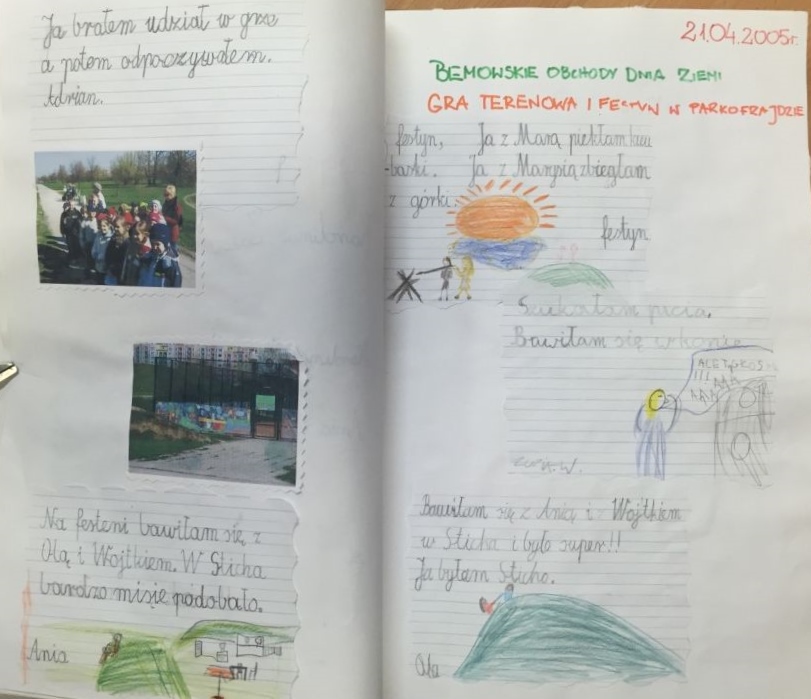 Ja brałem udział w grze
a potem odpoczywałem.
Adrian.
Na festeni bawiłam się z
Olą i Wojtkiem. W Sticha
bardzo misię podobało.
Ania
21.04.2005r.
BEMOWSKIE OBCHODY DNIA ZIEMI
GRA TERENOWA I FESTYN W PARKOFRAJDZIE
festyn, Ja z Marą piekłam kieu
-baski. Ja z Marysią zbiegłam
z górki.
festyn
Szukałam picia.
Bawiłam się w konie
ALE
!!! AAA
AAA
W.
Bawiłam się z Anią i z Wojtkiem
w Sticha i było super!!
Ja byłam Sticho.
Ola